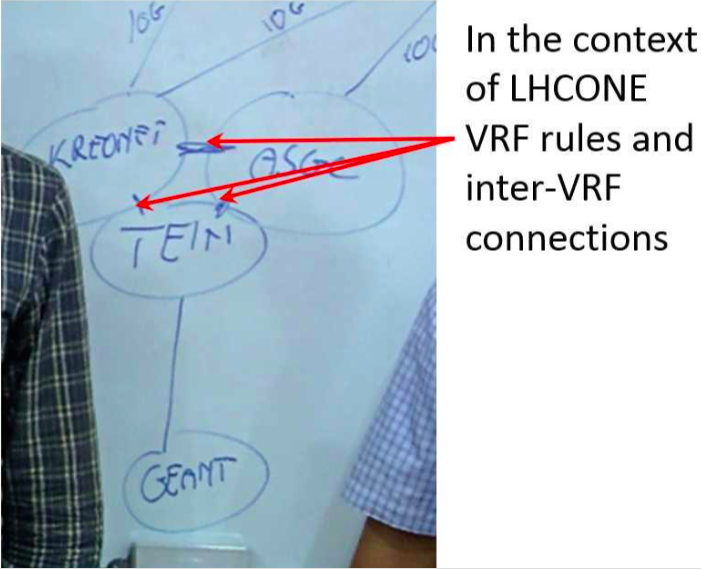 10G
10G
10G
KREONET
ASGC
TEIN
GEANT
In the context
of LHCONE
VRF rules and
inter-VRF
connections